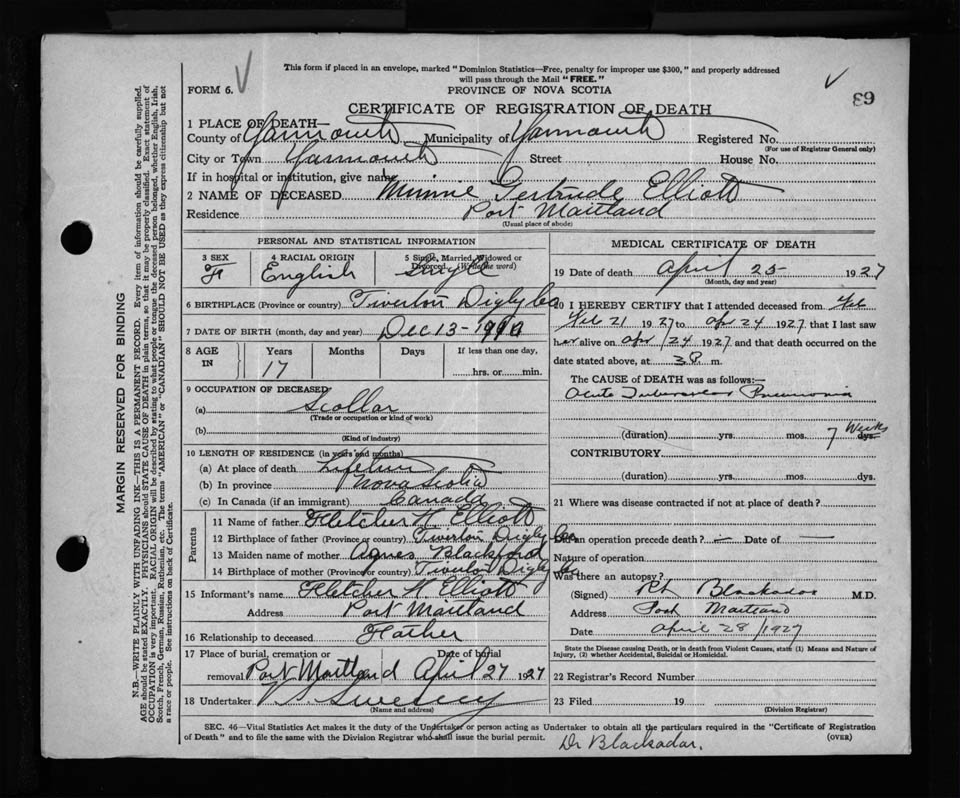 This form if placed in an envelope, marked "Dominion Statistics—Free, penalty for improper use $300," and properly addressed
will pass through the Mail "FREE."
FORM 6.
PROVINCE OF NOVA SCOTIA
89
CERTIFICATE OF REGISTRATION OF DEATH
1 PLACE OF DEATH—
County of Yarmouth Municipality of Yarmouth Registered No.
(For use of Registrar General only)
City or Town Yarmouth Street House No.
If in hospital or institution, give name
2 NAME OF DECEASED Minnie Gertrude Elliott
Residence Port Maitland
(Usual place of abode)
PERSONAL AND STATISTICAL INFORMATION
3 SEX 4 RACIAL ORIGIN 5 Single, Married, Widowed or
Divorced (Write the word)
F English Single
6 BIRTHPLACE (Province or country) Tiverton Digby Co
7 DATE OF BIRTH (month, day and year) Dec 13-
8 AGE IN Years Months Days If less than one day,
17 hrs. or min.
9 OCCUPATION OF DECEASED
(a) Scollar
(Trade or occupation or kind of work)
(b)
(Kind of industry)
10 LENGTH OF RESIDENCE (in years and months)
(a) At place of death Lifetime
(b) In province Nova Scotia
(c) In Canada (if an immigrant) Canada
Parents
11 Name of father Fletcher K Elliott
12 Birthplace of father (Province or country) Tiverton Digby Co
13 Maiden name of mother Agnes Blackford
14 Birthplace of mother (Province or country) Tiverton Digby Co
15 Informant's name Fletcher K Elliott
Address Port Maitland
16 Relationship to deceased Father
17 Place of burial, cremation or Date of burial
removal Port Maitland April 27 1927
18 Undertaker V. Sweeny
(Name and address)
MEDICAL CERTIFICATE OF DEATH
19 Date of death April 25 1927
(Month, day and year)
20 I HEREBY CERTIFY that I attended deceased from Feb
Feb 21 1927 to apr 24 1927 that I last saw
her alive on apr 24 1927 and that death occurred on the
date stated above, at 3 P. m.
The CAUSE of DEATH was as follows:—
Acute Tubercular Pneumonia
(duration) yrs. mos. 7 Weeks dys.
CONTRIBUTORY
(duration) yrs. mos. dys.
21 Where was disease contracted if not at place of death?
Did an operation precede death? — Date of —
Nature of operation
Was there an autopsy?
(Signed) Blackadar M.D.
Address Port Maitland
Date April 28/1927
State the Disease causing Death, or in death from Violent Causes, state (1) Means and Nature of
Injury, (2) whether Accidental, Suicidal or Homicidal.
22 Registrar's Record Number
23 Filed 19
(Division Registrar)
SEC. 46—Vital Statistics Act makes it the duty of the Undertaker or person acting as Undertaker to obtain all the particulars required in the "Certificate of Registration
of Death" and to file the same with the Division Registrar who shall issue the burial permit.
(OVER)
Dr Blackadar.
MARGIN RESERVED FOR BINDING
N.B.—WRITE PLAINLY WITH UNFADING INK—THIS IS A PERMANENT RECORD. Every item of information should be carefully supplied.
AGE should be stated EXACTLY. PHYSICIANS should STATE CAUSE OF DEATH in plain terms, so that it may be properly classified. Exact statement of
OCCUPATION is very important. RACIAL ORIGIN will be described by stating to what people or tongue the deceased person belonged, whether English, Irish,
Scotch, French, German, Russian, Ruthenian, etc. The terms "AMERICAN" or "CANADIAN" SHOULD NOT BE USED as they express citizenship but not
a race or people. See instructions on back of Certificate.